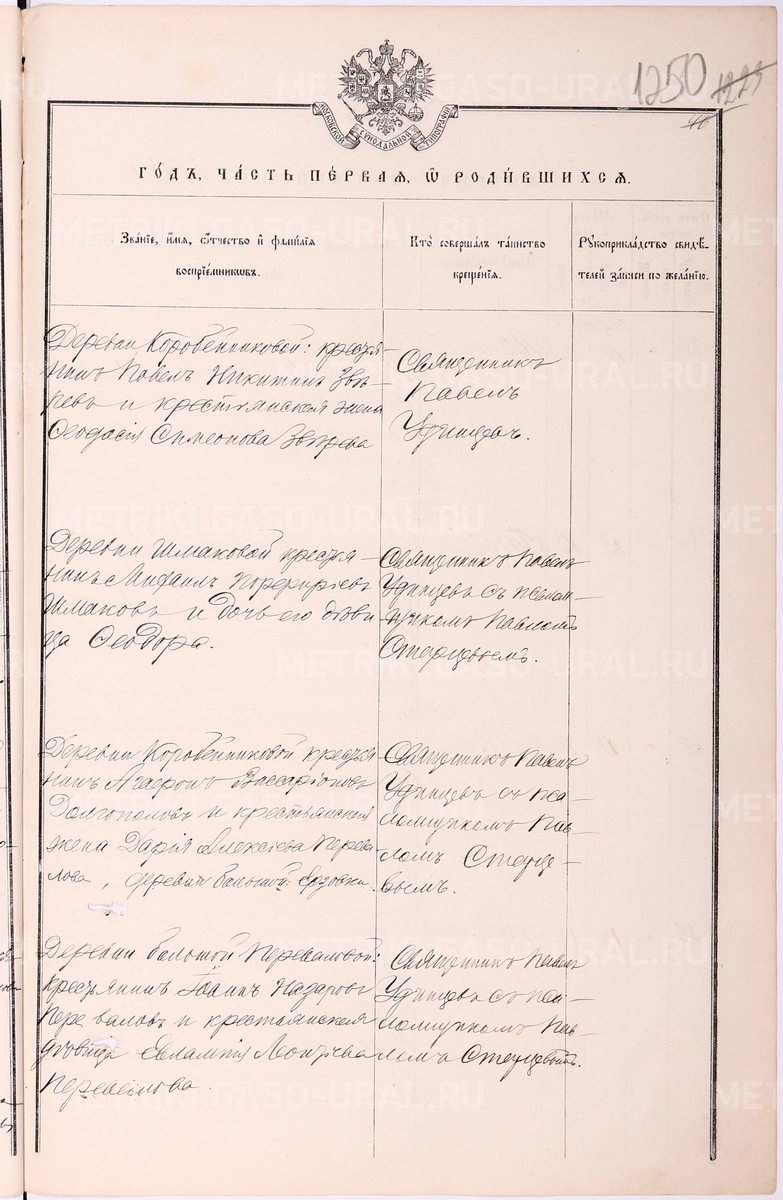 1250 1225
46
МОСКОВСКОЙ СѴНОДАЛЬНОЙ ТИПОГРАФІИ
ГО́ДЪ, ЧА́СТЬ ПЕ́РВАЯ, Ѡ РОДИ́ВШИХСЯ.
Зва́ніе, и́мя, ѻ҆́тчество и҆ фами́лія
воспрїе́мникѡвъ.
Кто̀ соверша́лъ та́инство
креще́нїя.
Рꙋкоприкла́дство свидѣ́-
телей за́писи по жела́нїю.
Деревни Коробейниковой: крестья-
нинъ Павелъ Никитинъ Звѣ-
ревъ и крестьянская жена
Ѳеодосія Симеонова Звѣрева
Священникъ
Павелъ
Удинцевъ.
Деревни Шмаковой крестья-
нинъ Михаилъ Порфиріевъ
Шмаковъ и дочь его дѣви-
ца Ѳеодора.
Священникъ Павелъ
Удинцевъ съ псалом-
щикомъ Павломъ
Старцевымъ.
Деревни Коробейниковой крестья
нинъ Агафонъ Виссаріоновъ
Долгополовъ и крестьянская
жена Дарія Алексіева Перева-
лова, деревни большой:
Священникъ Павелъ
Удинцевъ съ пса-
ломщикомъ Пав-
ломъ Старце-
вымъ.
Деревни большой Переваловой:
крестьянинъ Іоаннъ Назаровъ
Переваловъ и крестьянская
дѣвица Евлампія Леонтіева
Перевалова.
Священникъ Павелъ
Удинцевъ съ пса-
ломщикомъ Пав-
ломъ Старцевымъ.
METRIKI.GASO-URAL.RU